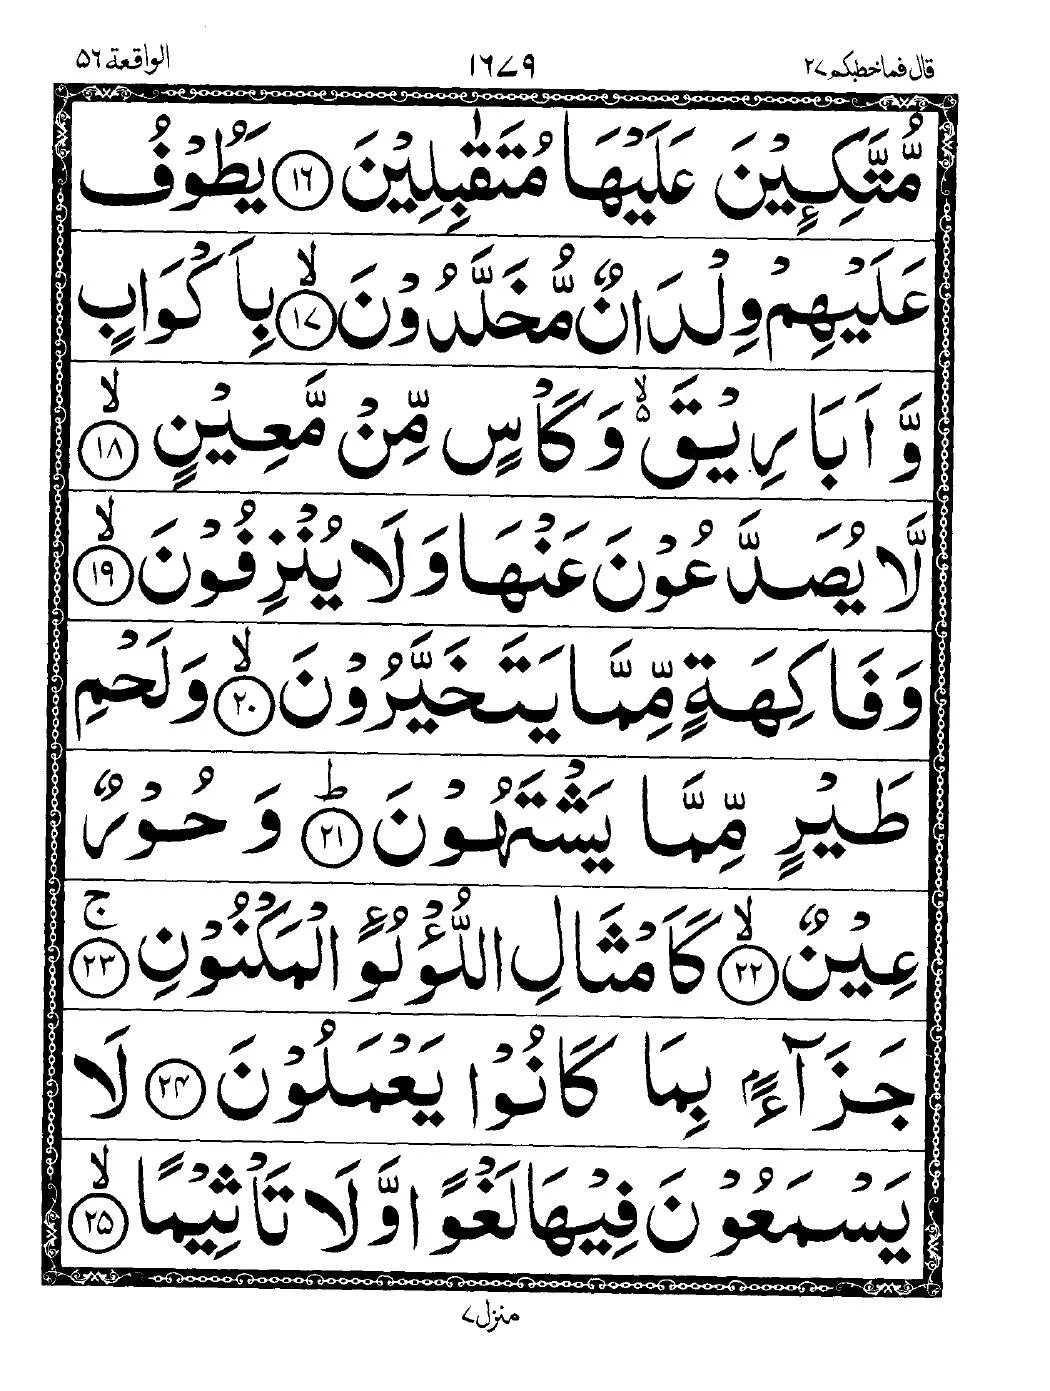 قال فما خطبکم ۲۷ ۱۶۷۹ الواقعة ۵۶
مُّتَّكِـِٕيۡنَ عَلَيۡهَا مُتَقٰبِلِيۡنَ ﴿۱۶﴾ يَطُوۡفُ
عَلَيۡهِمۡ وِلۡدَانٌ مُّخَلَّدُوۡنَ ۙ﴿۱۷﴾ بِاَكۡوَابٍ
وَّ اَبَارِيۡقَ ۬ۙ وَ كَاۡسٍ مِّنۡ مَّعِيۡنٍ ۙ﴿۱۸﴾
لَّا يُصَدَّعُوۡنَ عَنۡهَا وَلَا يُنۡزِفُوۡنَ ۙ﴿۱۹﴾
وَفَاكِهَةٍ مِّمَّا يَتَخَيَّرُوۡنَ ۙ﴿۲۰﴾ وَلَحۡمِ
طَيۡرٍ مِّمَّا يَشۡتَهُوۡنَ ؕ﴿۲۱﴾ وَ حُوۡرٌ
عِيۡنٌ ۙ﴿۲۲﴾ كَاَمۡثَالِ اللُّؤۡلُـؤِ الۡمَكۡنُوۡنِ ۚ﴿۲۳﴾
جَزَآءًۢ بِمَا كَانُوۡا يَعۡمَلُوۡنَ ﴿۲۴﴾ لَا
يَسۡمَعُوۡنَ فِيۡهَا لَغۡوًا وَّلَا تَاۡثِيۡمًا ۙ﴿۲۵﴾
منزل ۷